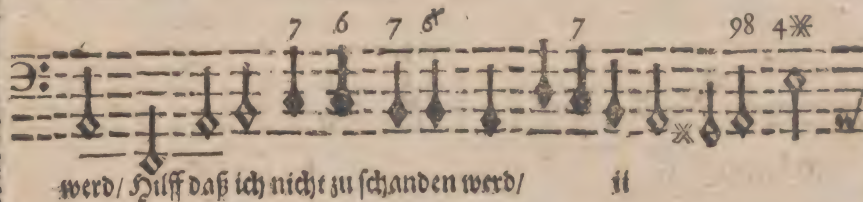 7 6 7 6 7 98 4
werd/ Hilff daß ich nicht zu schanden werd/ ij